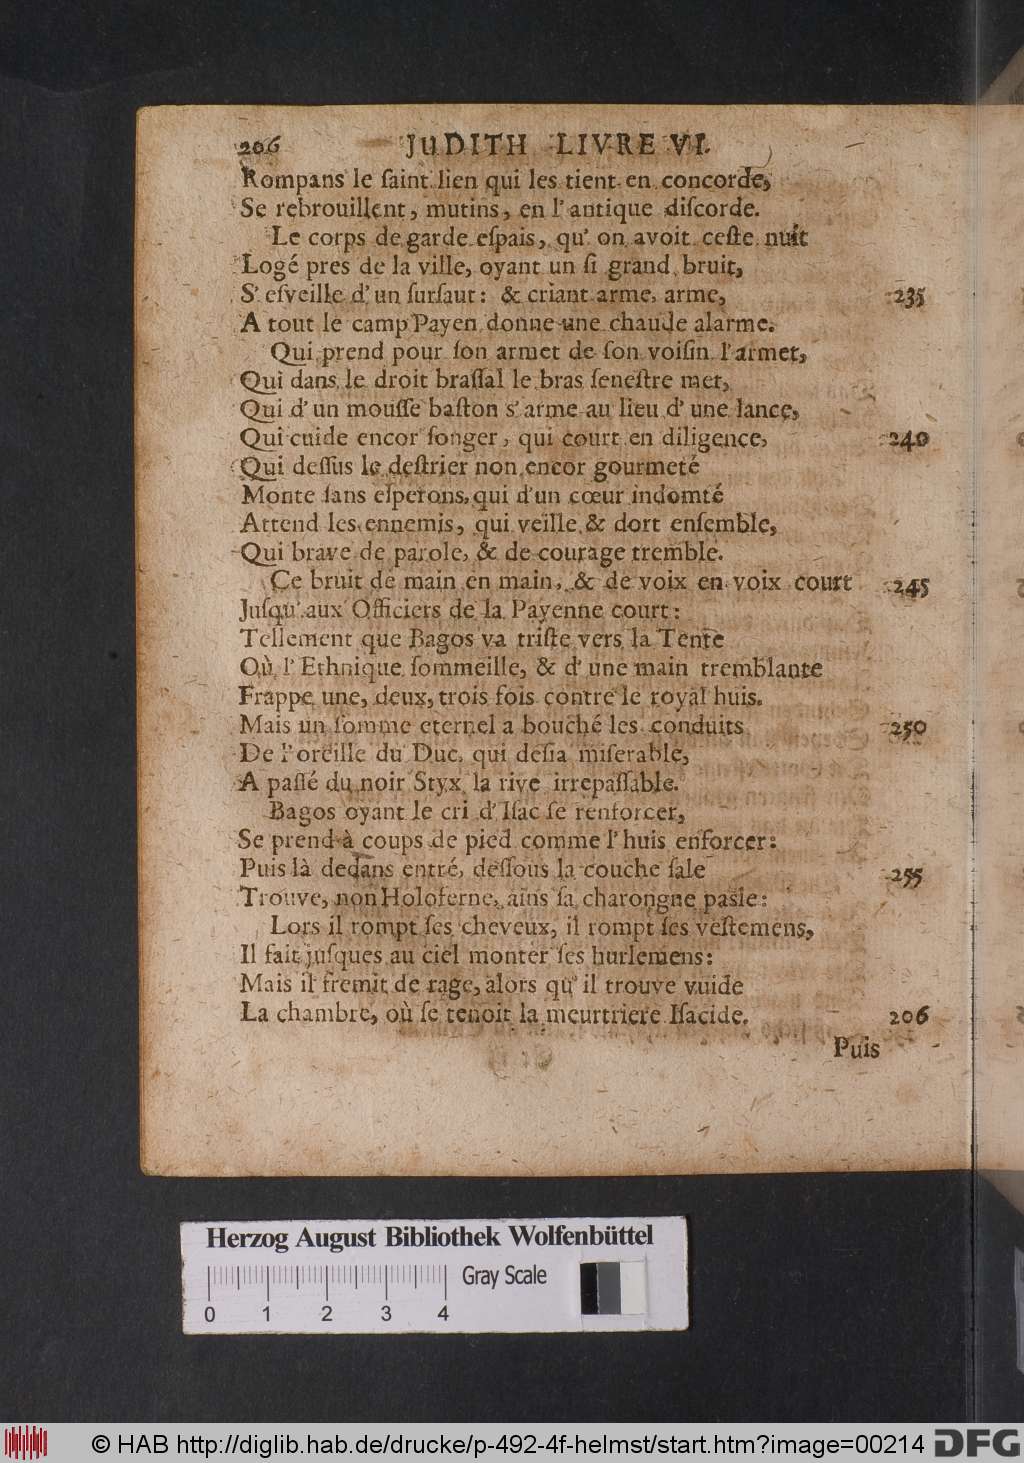 206 JUDITH LIVRE VI.
Rompans le ſaint lien qui les tient en concorde,
Se rebrouillent, mutins, en l'antique diſcorde.
Le corps de garde eſpais, qu' on avoit ceſte nuit
Logé pres de la ville, oyant un ſi grand bruit,
S' eſveille d' un ſurſaut: & criant arme, arme, 235
A tout le camp Payen donne une chaude alarme.
Qui prend pour ſon armet de ſon voiſin l'armet,
Qui dans le droit braſſal le bras ſeneſtre met,
Qui d' un mouſſe baſton s' arme au lieu d' une lance,
Qui cuide encor ſonger, qui court en diligence, 240
Qui deſſus le deſtrier non encor gourmeté
Monte ſans eſperons, qui d'un cœur indomté
Attend les ennemis, qui veille & dort enſemble,
Qui brave de parole, & de courage tremble.
Ce bruit de main en main, & de voix en voix court 245
Juſqu' aux Officiers de la Payenne court:
Tellement que Bagos va triſte vers la Tente
Où l' Ethnique ſommeille, & d' une main tremblante
Frappe une, deux, trois fois contre le royal huis.
Mais un ſomme eternel a bouché les conduits 250
De l'oreille du Duc, qui deſia miſerable,
A paſſé du noir Styx la rive irrepaſſable.
Bagos oyant le cri d' Iſac ſe renforcer,
Se prend à coups de pied comme l' huis enforcer:
Puis là dedans entré, deſſous la couche ſale 255
Trouve, non Holoferne, ains ſa charongne paſle:
Lors il rompt ſes cheveux, il rompt ſes veſtemens,
Il fait juſques au ciel monter ſes hurlemens:
Mais il fremit de rage, alors qu' il trouve vuide
La chambre, où ſe tenoit la meurtriere Iſacide. 206
Puis
Herzog August Bibliothek Wolfenbüttel
Gray Scale
0 1 2 3 4
© HAB http://diglib.hab.de/drucke/p-492-4f-helmst/start.htm?image=00214 DFG